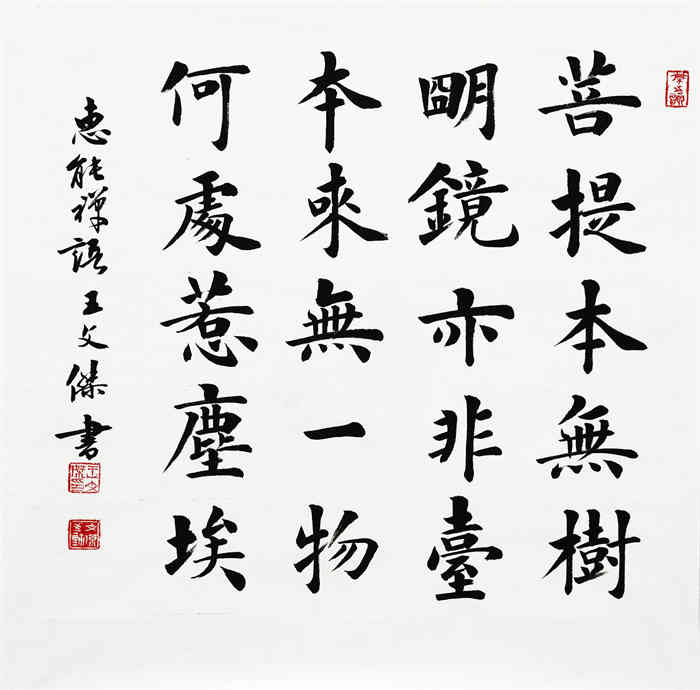 菩提本無樹
明鏡亦非臺
本來無一物
何處惹塵埃
惠能禪語王文傑書